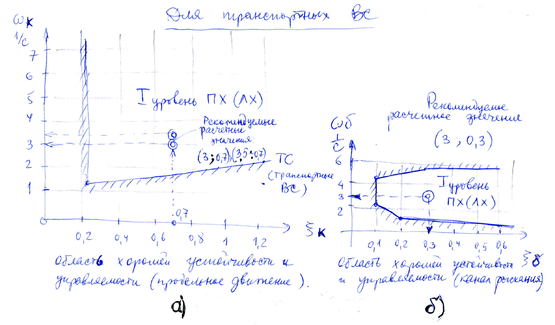 Для транспортных ВС
ωк
1/с
7
6
5
4
3
2
1
I уровень ПХ (ЛХ)
Рекомендуемые
расчетные
значения
(3; 0,7) (3,5; 0,7)
ТС
(транспортные
ВС)
0,7
0,2 0,4 0,6 0,8 1 1,2
ξк
область хорошей устойчивости и
управляемости (продольное движение).
а)
Рекомендуемое
расчетное значение
(3, 0,3)
ωб
1/с
6
4
3
2
I уровень
ПХ (ЛХ)
0,1 0,2 0,3 0,4 0,5 0,6
ξб
область хорошей устойчивости
и управляемости (канал рыскания)
б)